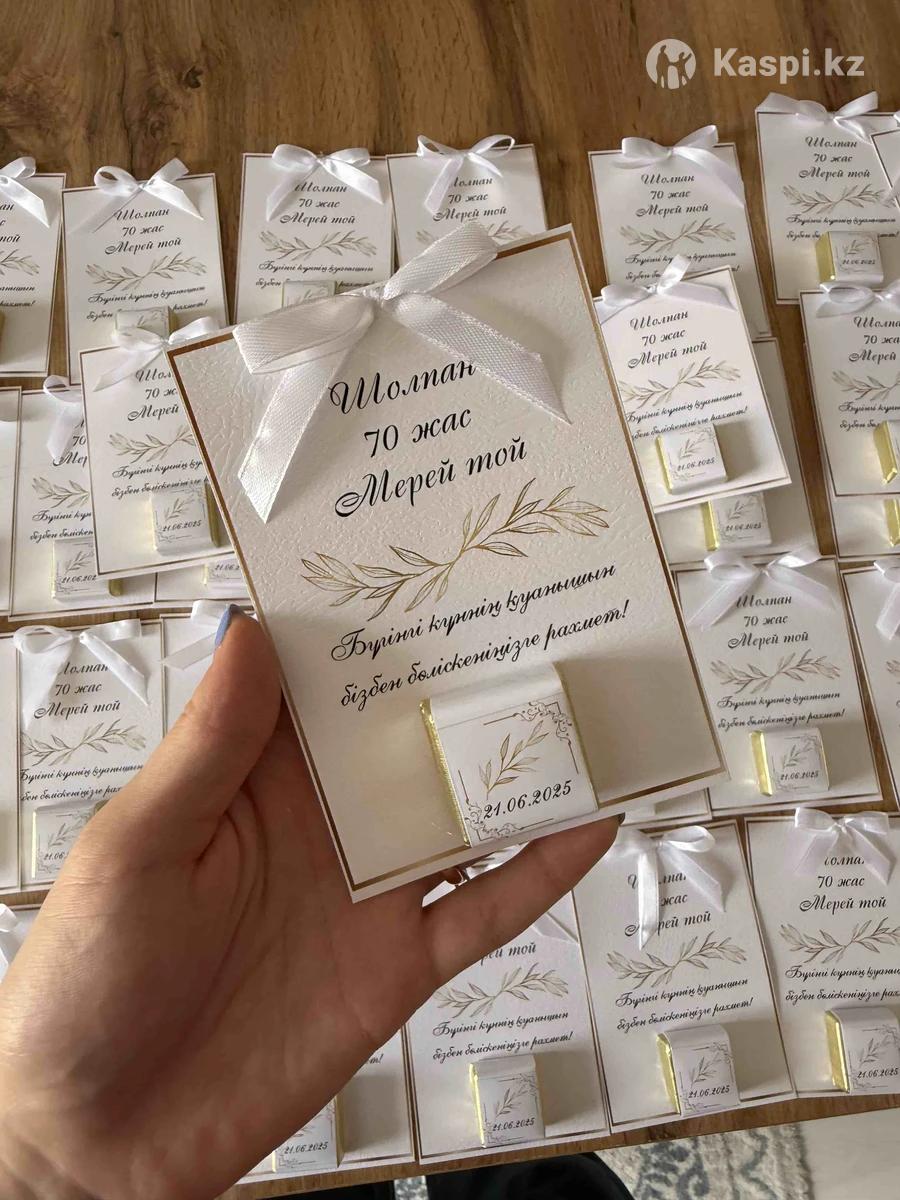 Kaspi.kz
Шолпан
70 жас
Мерей той
Бүгінгі күннің қуанышын
бізбен бөліскеніңізге рахмет!
21.06.2025